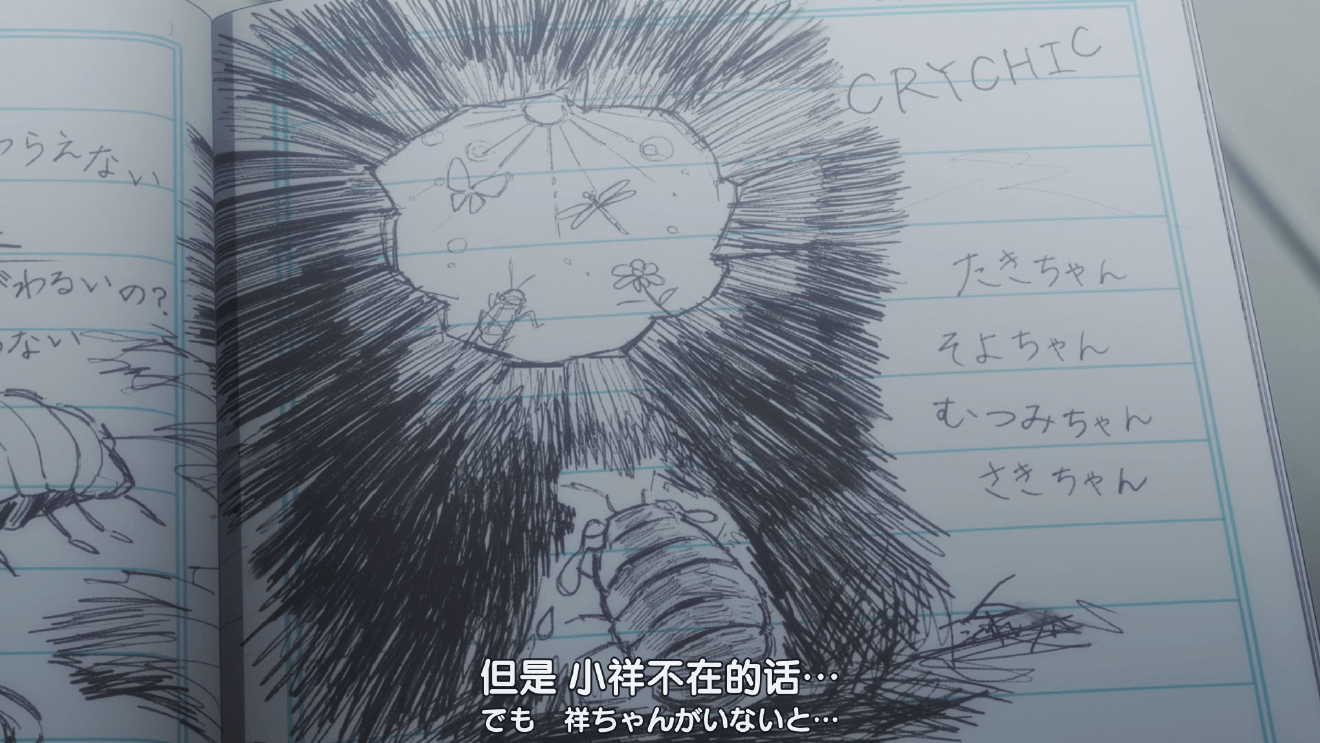 わらえない
がわるいの?
ない
CRYCHIC
たきちゃん
そよちゃん
むつみちゃん
さきちゃん
但是 小祥不在的话…
でも 祥ちゃんがいないと…